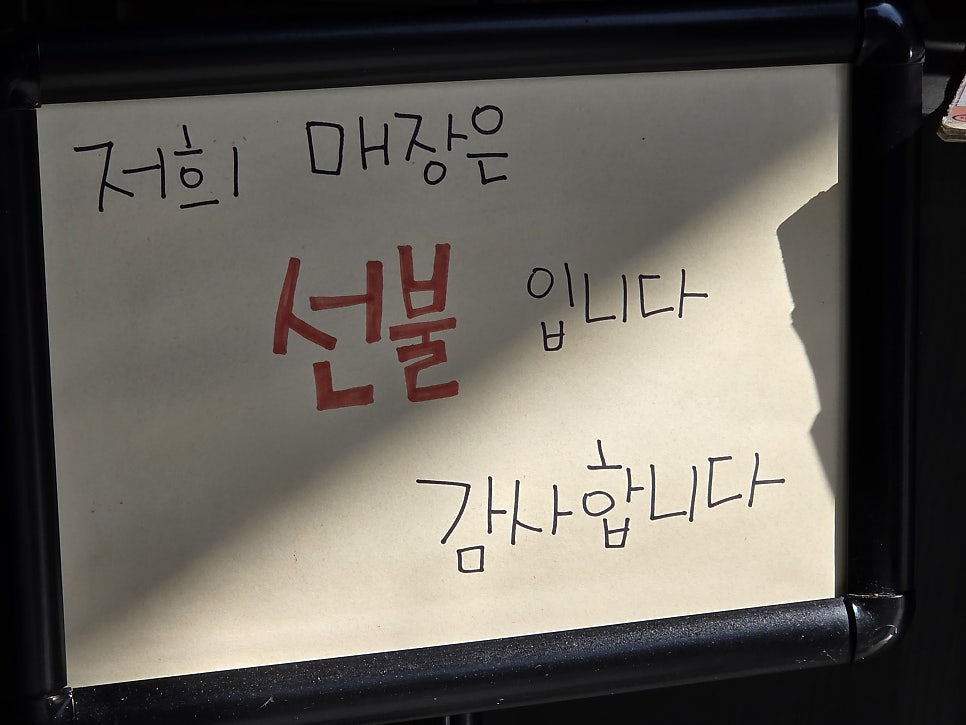 저희 매장은
선불 입니다
감사합니다